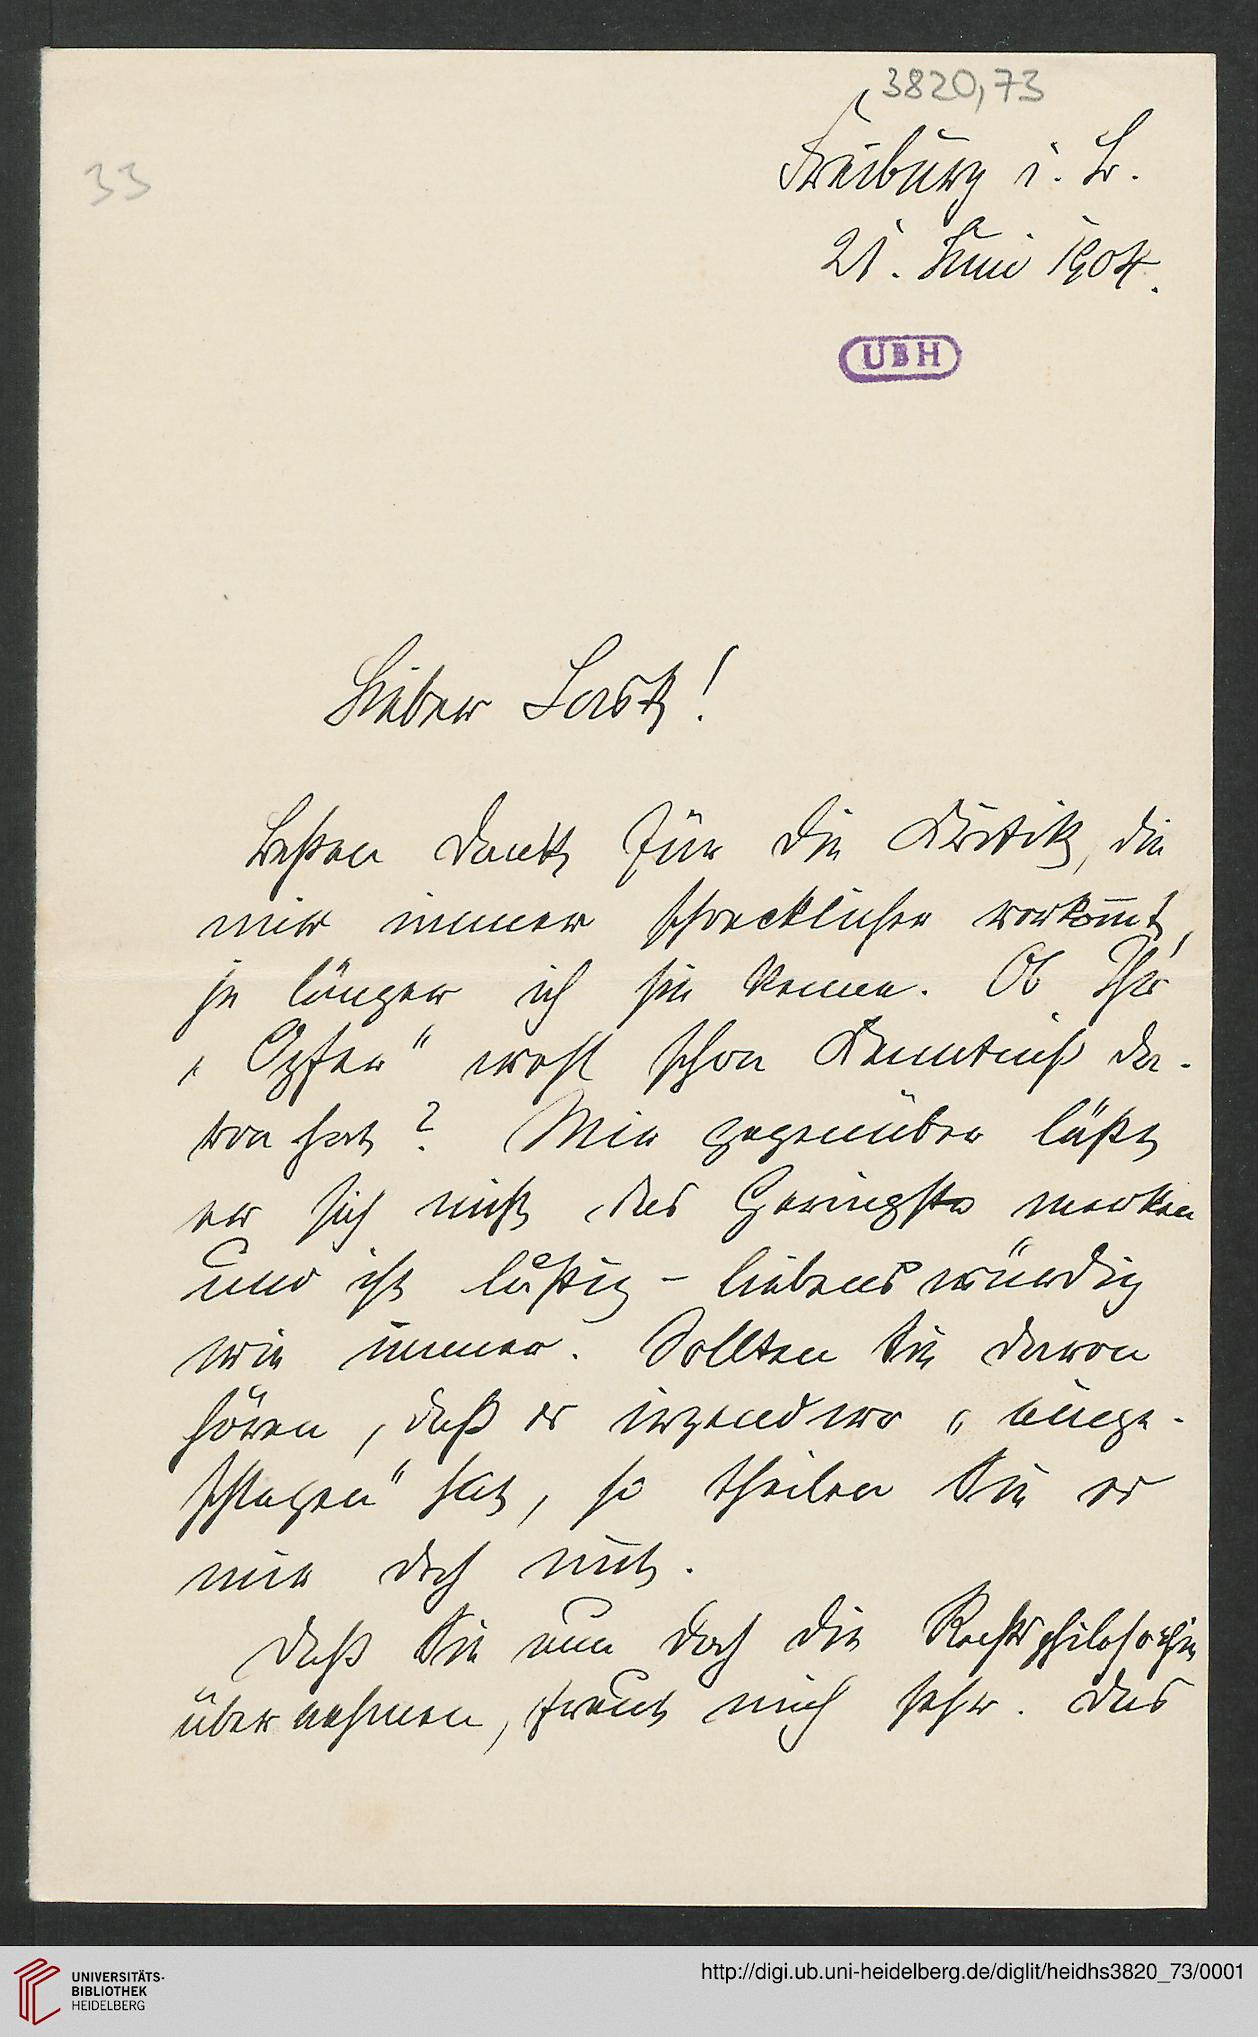 3820,73
33
Freiburg i. Br.
21. Juni 1904.
UBH
Lieber Lask!
Besten Dank für die Kritik, die
mir immer schrecklicher vorkom̅t,
je länger ich sie kenne. Ob Ihr
„Opfer“ wohl schon Kenntniß da-
von hat? Mir gegenüber läßt
er sich nicht das Geringste merken
und ist lustig - liebenswürdig
wie immer. Sollten Sie davon
hören, daß es irgendwo „einge-
schlagen“ hat, so theilen Sie es
mir doch mit.
Daß Sie nun doch die Rechtsphilosophie
übernehmen, freut mich sehr. Das
UNIVERSITÄTS-
BIBLIOTHEK
HEIDELBERG
http://digi.ub.uni-heidelberg.de/diglit/heidhs3820_73/0001